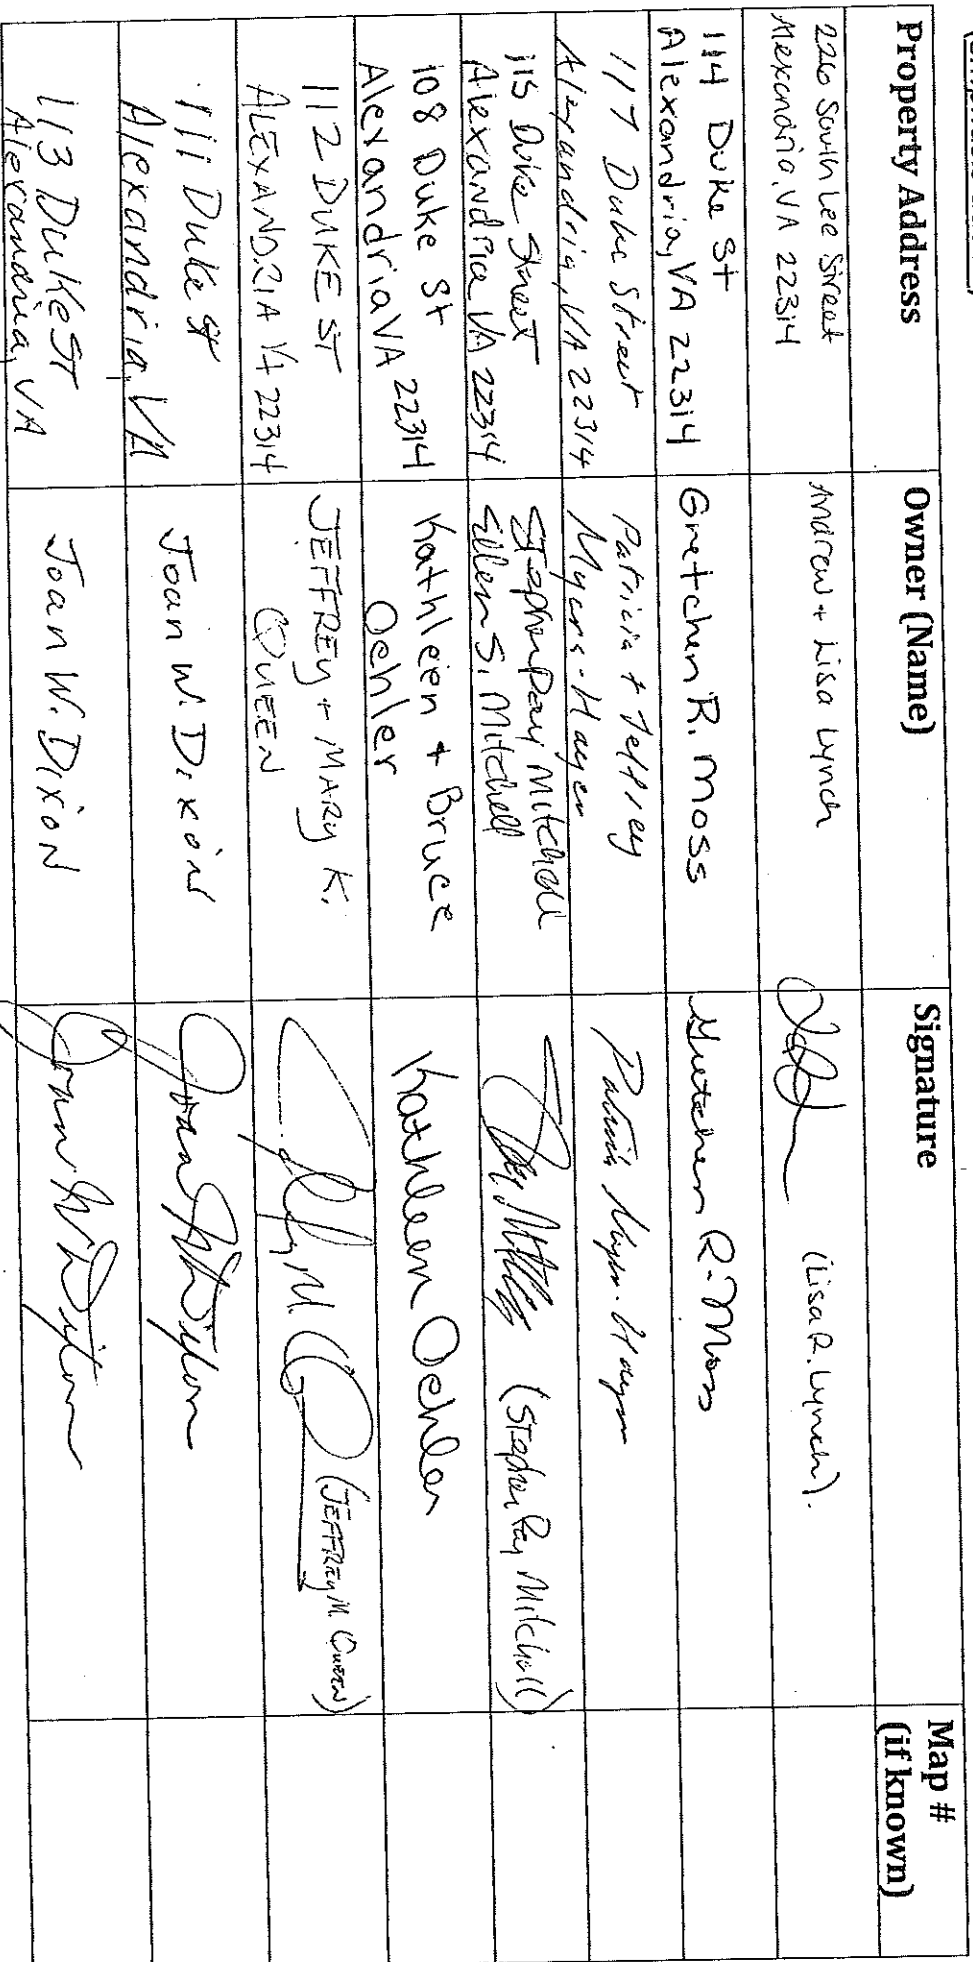 Property Address Owner (Name) Signature Map #
(if known)
226 South Lee Street
Alexandria, VA 22314
Andrew + Lisa Lynch
(Lisa R. Lynch).
114 Duke St
Alexandria, VA 22314
Gretchen R. Moss
Gretchen R. Moss
117 Duke Street
Alexandria, VA 22314
Patricia + Jeffrey
Myers-Hayer
Patricia Myers-Hayer
115 Duke Street
Alexandria VA 22314
Stephen Day Mitchell
Ellen S. Mitchell
(Stephen Day Mitchell)
108 Duke St
Alexandria VA 22314
Kathleen + Bruce
Oehler
Kathleen Oehler
112 DUKE ST
ALEXANDRIA VA 22314
JEFFREY + MARY K.
QUEEN
(JEFFREY M. QUEEN)
111 Duke St
Alexandria, VA
Joan W. Dixon
Joan W. Dixon
113 Duke ST
Alexandria, VA
Joan W. Dixon
Joan W. Dixon